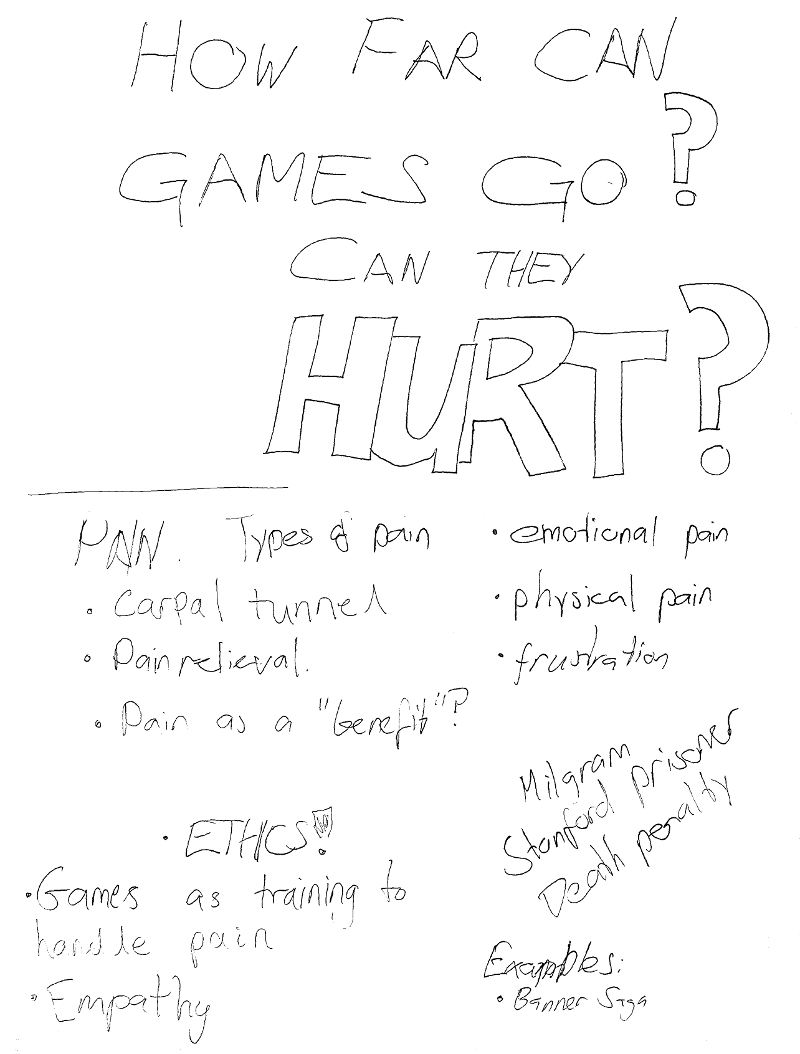 HOW FAR CAN
GAMES GO?
CAN THEY
HURT?
PAIN. Types of pain
• Carpal tunnel
• Pain relieval.
• Pain as a "benefit"?
• emotional pain
• physical pain
• frustration
Milgram
Stanford prisoner
Death penalty
• ETHICS!
• Games as training to
handle pain
• Empathy
Examples:
• Banner Saga